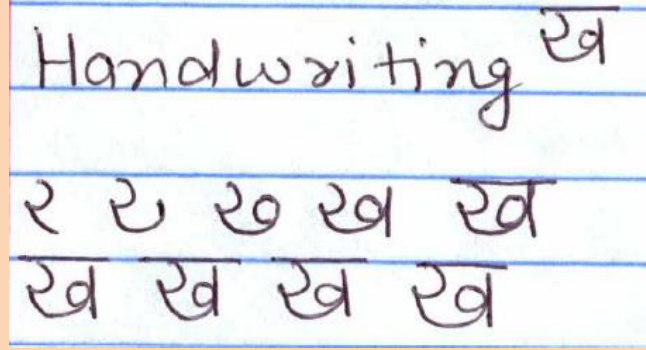 Handwriting ख
र ख ख
ख ख ख ख